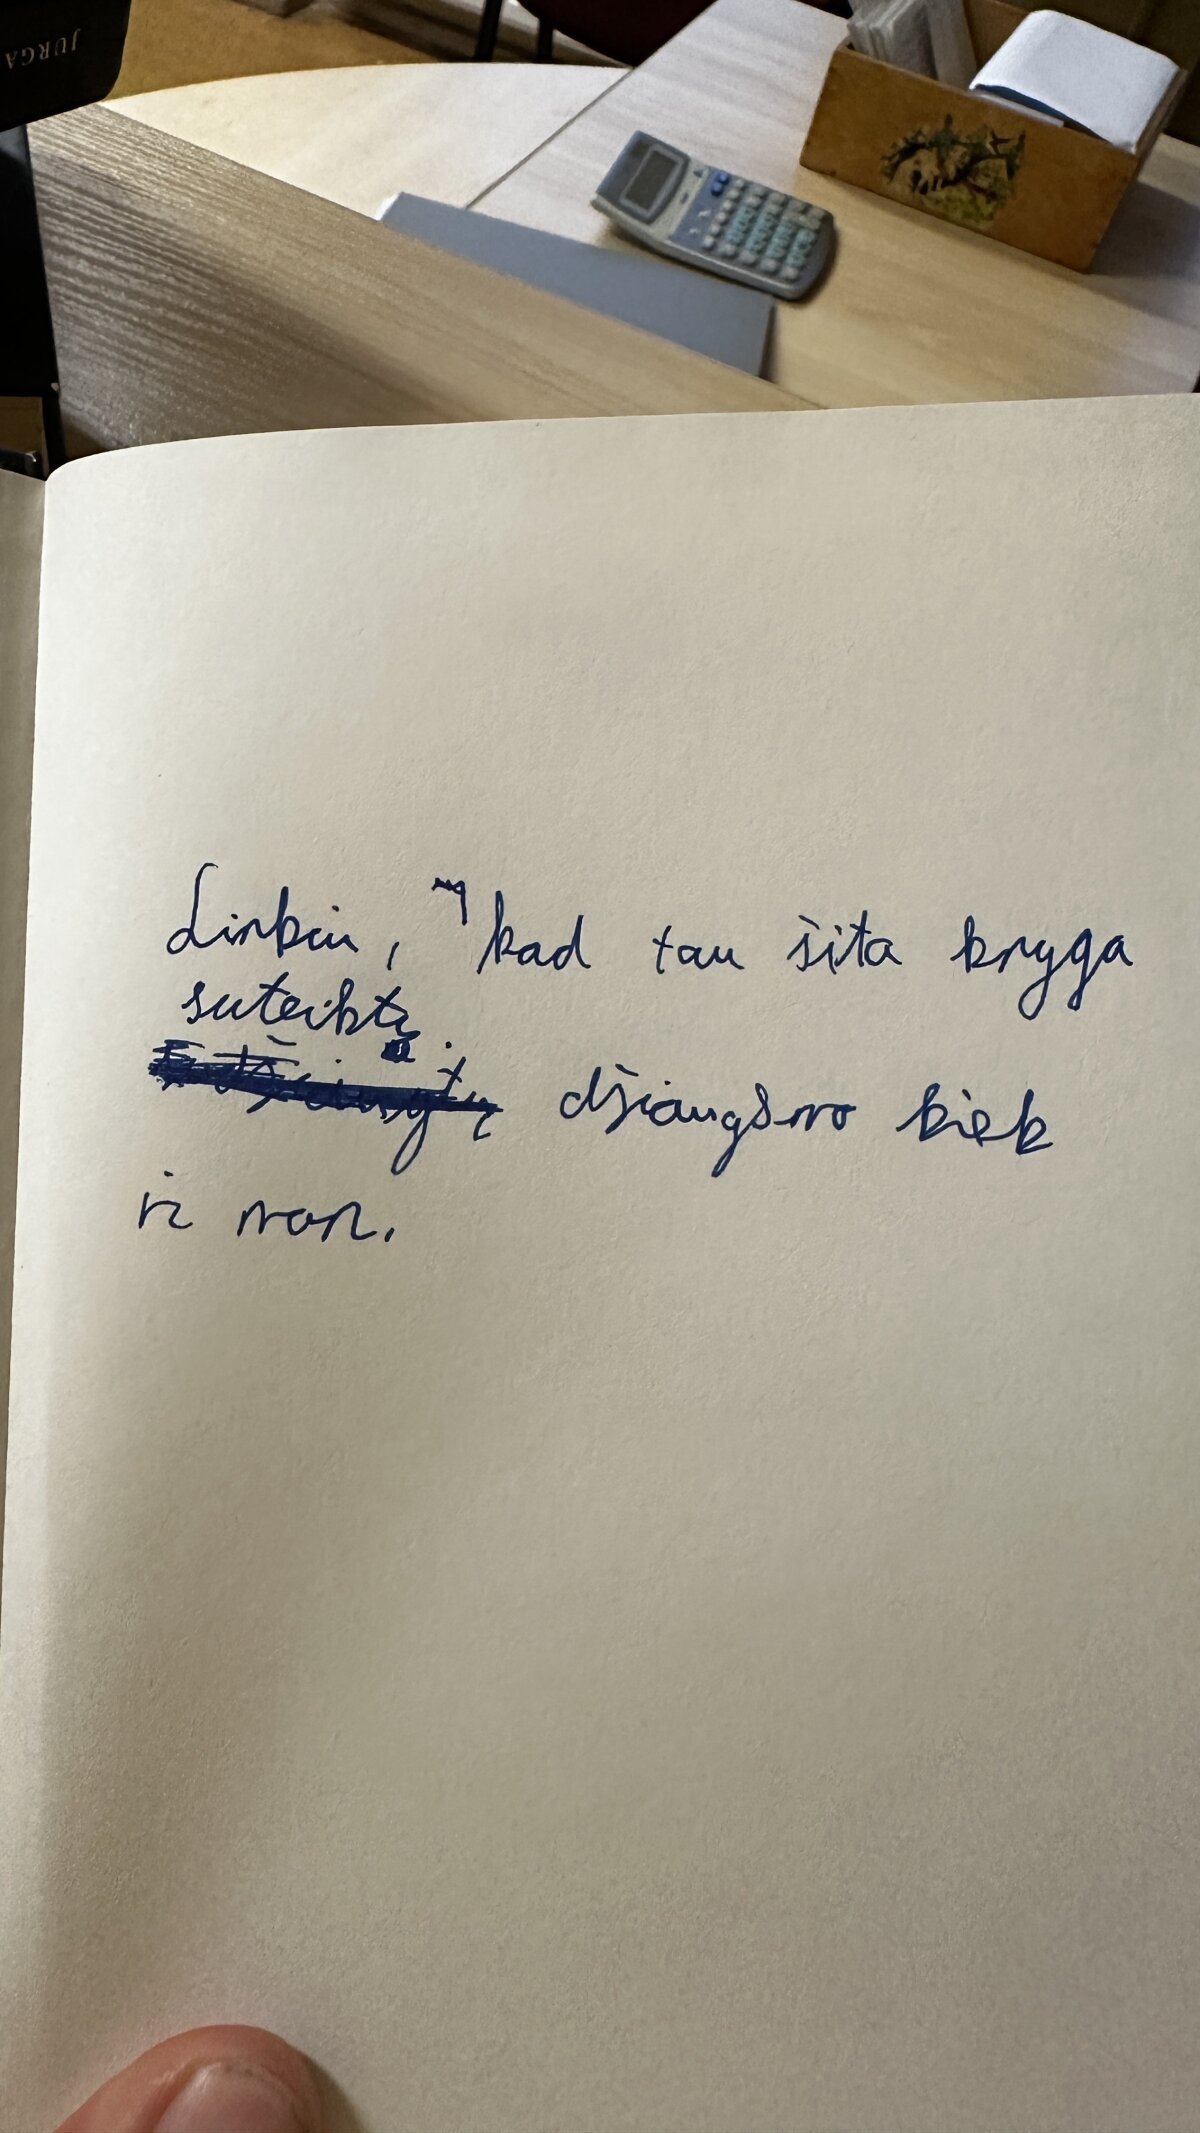 JURGA
Linkiu, kad tau šita knyga
suteiktų
džiaugsmo kiek
ir man.